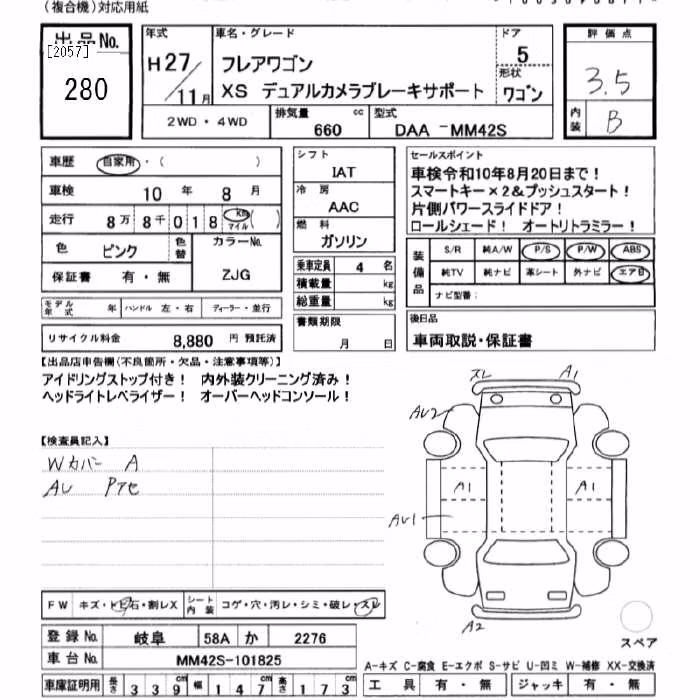 (複合機)対応用紙
出品No. 年式 車名・グレード ドア 評価点
[2057] H27/11月 フレアワゴン 5 3.5
280 XS デュアルカメラブレーキサポート 形状 ワゴン
2WD・4WD 排気量 660 cc 型式 DAA-MM42S 内装 B
車歴 自家用・( ) シフト IAT セールスポイント
車検 10年 8月 冷房 AAC 車検令和10年8月20日まで!
スマートキー×2&プッシュスタート!
走行 8万8千018 Km マイル ( ) 燃料 ガソリン 片側パワースライドドア!
ロールシェード! オートリトラミラー!
色 ピンク 色替 カラーNo. ZJG 乗車定員 4名 装備品 S/R 純A/W P/S P/W ABS
保証書 有・無 積載量 kg 純TV 純ナビ 革シート 外ナビ エアB
モデル年式 年 ハンドル 左・右 ディーラー・並行 総重量 kg ナビ型番:
リサイクル料金 8,880 円 預託済 書類期限 月 日 後日品 車両取説・保証書
【出品店申告欄(不良箇所・欠品・注意事項等)】
アイドリングストップ付き! 内外装クリーニング済み!
ヘッドライトレベライザー! オーバーヘッドコンソール!
スレ A1
AU2
【検査員記入】
Wカバー A
AU Pアセ
A1 A1
AU1
A2
FW キズ・トビ石・割レX シート内装 コゲ・穴・汚レ・シミ・破レ・スレ
登録No. 岐阜 58A か 2276 スペア
車台No. MM42S-101825 A-キズ C-腐食 E-エクボ S-サビ U-凹ミ W-補修 XX-交換済
車庫証明用 長さ 339 幅 147 高さ 173 工具 有・無 ジャッキ 有・無